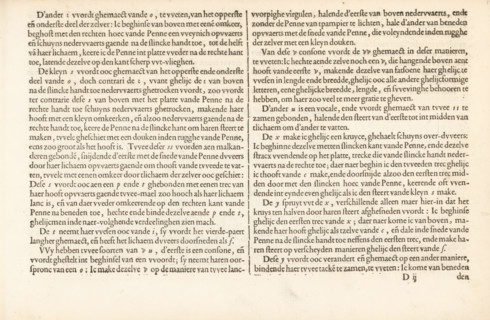 D'ander i vvordt ghemaeckt vande o, te vveten, van het opperste
ende onderste deel der zelver: Ick beghinse van boven met eene omkeer,
beghost met den rechten hoec vande Penne een vveynich opvvaerts
en schuyns nedervvaerts gaende op de slincke handt toe, tot de helft
vā haer lichaem, treckende met de platte Penne vveder na de rechte handt
toe, latende gelyden op den kant scherp vvt-vlieghen.
De kleyn s vvordt ooc ghemaeckt van het opperste ende onderste
deel vande o, doch contrari de i, vvant ghelijc de i van boven
na de slincke handt toe nedervvaerts getrocken vvordt, zoo vvordt
ter contrarie dese s van boven met het platte vande Penne na de
rechte handt toe schuyns nedervvaerts ghetrocken, makende haer
hooft met een kleyn omkeerken, en alzoo nedervvaerts gaende na de
rechte handt toe, keere de Penne na de slincke handt om haren steert te
maken, tvvelc gheschiet met eenen dicken rugghe vande Penne,
ens zoo groot als het hooft is. Tvvee deser ss vvorden aen malkan-
deren gebondē, snijdende d'eerste met de snede vande Penne dvveers
door haer lichaem opvvaerts gaende om thooft vande tvveede te vat-
ten, tvvelc met eenen omkeer door tlichaem der zelver ooc geschiet:
Dese s vvordt ooc aen een p ende t ghebonden met eenen trec van
haer hooft opvvaerts gaende tvvee-mael zoo hooch als haer lichaem
lanc is, en van daer vveder omkeerende op den rechten kant vande
Penne na beneden toe, hechte ende binde dezelve aende p ende t,
ghelijcmen inde naer-volghende verdeelinghen zien mach.
De t neemt haer vvesen ooc vande i, zy vvordt het vierde-paert
langher ghemaect, en heeft het lichaem dvveers doorsneden als f.
VVy hebben tvvee soorten van v u, d'eerste is een consone, eñ
vvordt ghestelt int beghinsel van een vvoordt; sy neemt haren oor-
spronc van een o: Ic make dezelve v op de maniere van tvvee lanc-
vvorpighe virgulen, halende d'eerste van boven nedervvaerts, ende
zonder de Penne van tpampier te lichten, hale d'ander van beneden
opvvaerts met de snede vande Penne, die voleyndende inden rugghe
der zelver met een kleyn douken.
Van dese v consone vvordt de vv ghemaect in deser manieren,
te vveten: Ic hechte aende zelve noch een v, die hangende boven aent
hooft vande eerste v, makende dezelve van fatsoene haer ghelijc; te
vveten in lengde ende breedde, ghelijc ooc alle andere ghelijcformige
letteren, eene ghelijcke breedde, lengde, eñ svvevinghe behooren te
hebben, om haer zoo veel te meer gratie te gheven.
D'ander u is een vocale, ende vvordt ghemaect van tvvee ıı te
zamen gebonden, halende den steert van d'eerste tot int midden van
tlichaem om d'ander te vatten.
De x make ic ghelijc een kruyce, ghehaelt schuyns over-dvveers:
Ic beghinne dezelve metten slincken kant vande Penne, ende eyndese
strack vvendende op het platte, trecke die vande slincke handt neder-
vvaerts na de rechte toe; daer naer beghin ic den tvveeden trec ghelijc
ic thooft vande c make, ende doorsnijde alzoo den eersten trec; mid-
den door met den slincken hoec vande Penne, keerende oft vven-
dende int eynde even ghelijc als ic den steert vande kleyn s make.
De y spruyt vvt de v, verschillende alleen maer hier-in dat hy
kruyt een halven door haren steert afghesneden vvordt: Ic beghinne
ghelijc den eersten trec vande o; daer naer kome ic van boven, ma-
kende haer hooft ghelijc als tzelve vande c, eñ dale inde snede vande
Penne na de slincke handt toe neffens den eersten trec, ende make ha-
ren steert op verscheyden manieren ghelijc den steert vande f.
Dese y vvordt ooc verandert en ghemaect op een ander maniere,
bindende haer tvvee tacke te zamen, te vveten: Ic kome van beneden
D ij
den